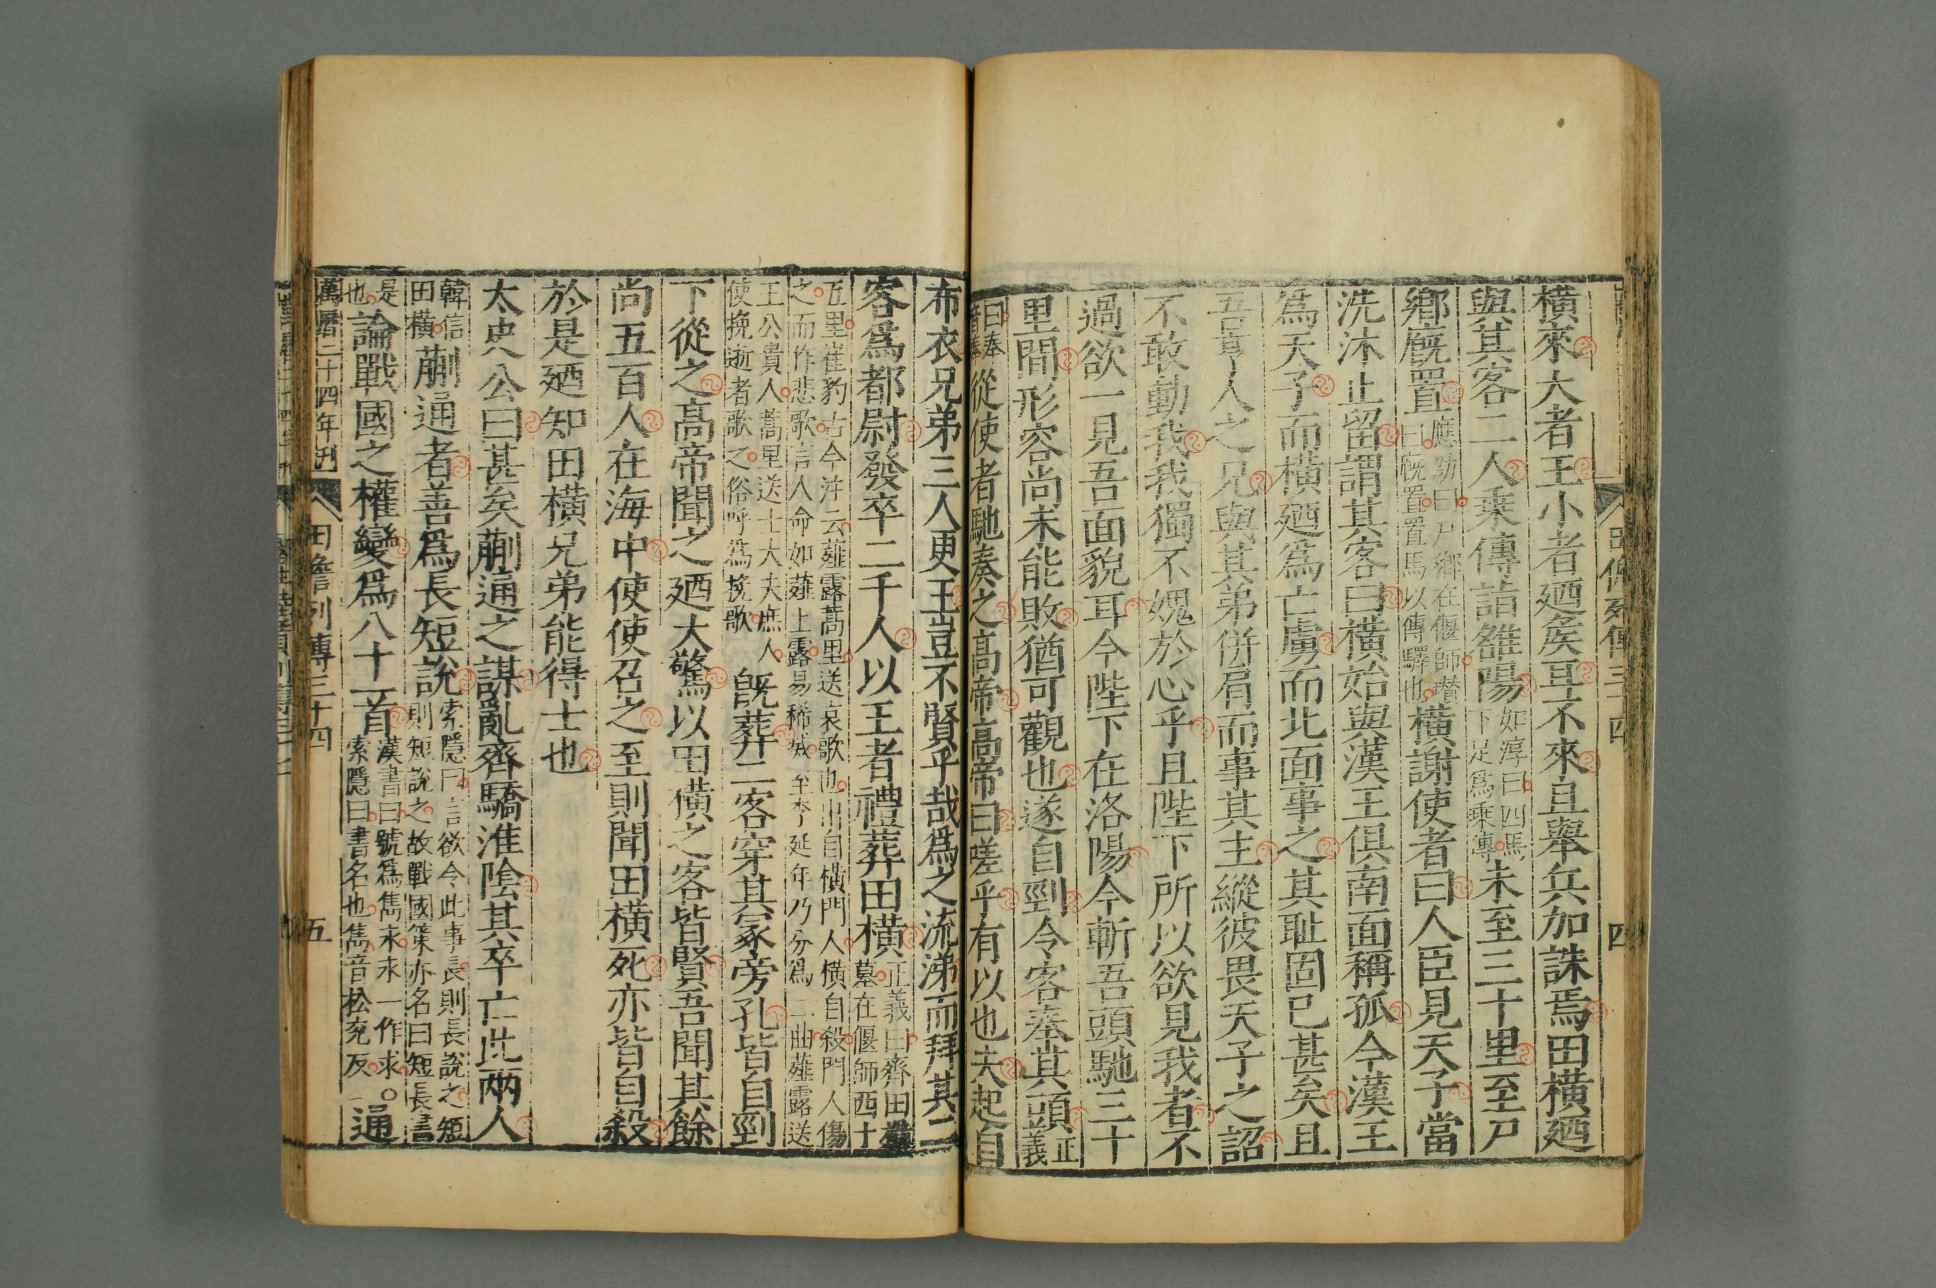 橫來大者王小者廼矦耳不來且舉兵加誅焉田橫廼
與其客二人乗傳詣雒陽如淳曰四馬下足為乗傳未至三十里至尸
鄉廐置應劭曰尸鄉在偃師瓚曰廐置置馬以傳驛也橫謝使者曰人臣見天子當
洗沐止留謂其客曰橫始與漢王俱南面稱孤今漢王
為天子而橫廼為亡虜而北面事之其耻固已甚矣且
吾亨人之兄與其弟併肩而事其主縱彼畏天子之詔
不敢動我我獨不媿於心乎且陛下所以欲見我者不
過欲一見吾面貌耳今陛下在洛陽今斬吾頭馳三十
里間形容尚未能敗猶可觀也遂自剄令客奉其頭正義
曰奉音捧從使者馳奏之高帝高帝曰嗟乎有以也夫起自
布衣兄弟三人更王豈不賢乎哉為之流涕而拜其二
客為都尉發卒二千人以王者禮葬田橫正義曰齊田橫墓在偃師西十
五里崔豹古今注云薤露蒿里送哀歌也出自橫門人橫自殺門人傷之而作悲歌言人命如薤上露易稀滅至李延年乃分為二曲薤露送
王公貴人蒿里送士大夫庶人使挽逝者歌之俗呼為挽歌旣葬二客穿其冢旁孔皆自剄
下從之高帝聞之廼大驚以田橫之客皆賢吾聞其餘
尚五百人在海中使使召之至則聞田橫死亦皆自殺
於是廼知田橫兄弟能得士也
太史公曰甚矣蒯通之謀亂齊驕淮陰其卒亡此兩人
韓信田橫蒯通者善為長短說索隱曰言欲令此事長則長說之短則短說之故戰國策亦名曰短長書
是也論戰國之權變為八十一首漢書曰號為雋永永一作求索隱曰書名也雋音松兗反通
萬曆二十四年刊
田儋列傳三十四
五
四